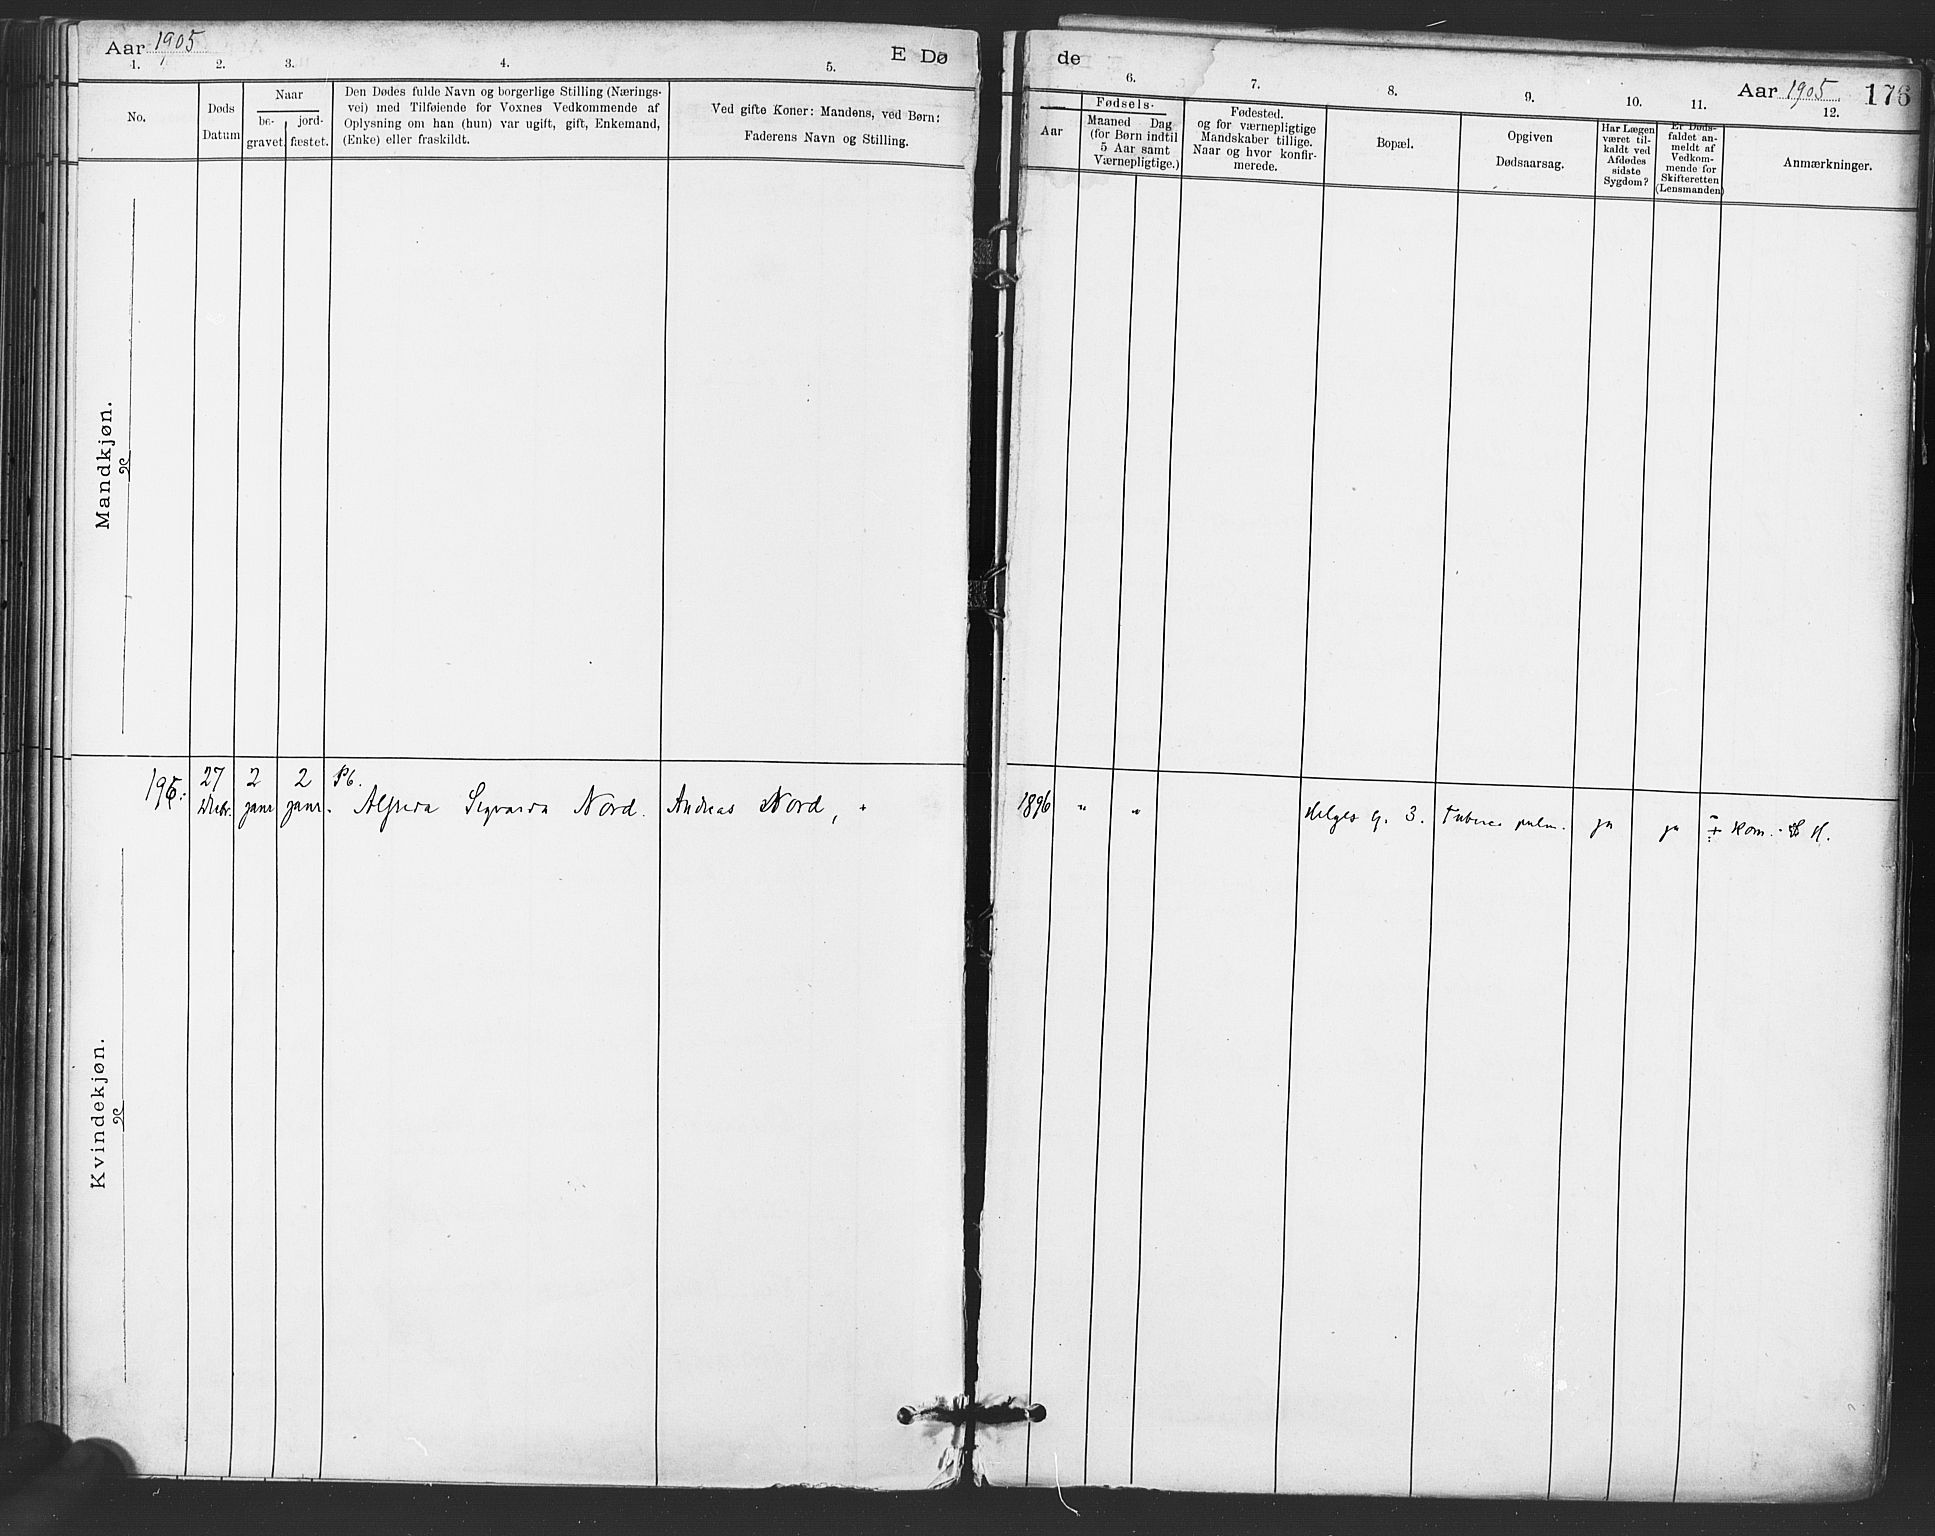 Aar 1905
E Dø
1. 2. 3. 4. 5.
No.
Døds
Datum
Naar
be-
gravet.
jord-
fæstet.
Den Dødes fulde Navn og borgerlige Stilling (Nærings-
vei) med Tilføiende for Voxnes Vedkommende af
Oplysning om han (hun) var ugift, gift, Enkemand,
(Enke) eller fraskildt.
Ved gifte Koner: Mandens, ved Børn:
Faderens Navn og Stilling.
Mandkjøn.
27 2 2
janr janr. Alfreda Sigvarda Nord. Andreas Nord, "
Kvindekjøn.
de
Aar 1905 176
6. 7. 8. 9. 10. 11. 12.
Fødsels-
Aar
Maaned Dag
(for Børn indtil
5 Aar samt
Værnepligtige.)
Fødested.
og for værnepligtige
Mandskaber tillige.
Naar og hvor konfir-
merede.
Bopæl.
Opgiven
Dødsaarsag.
Har Lægen
været til-
kaldt ved
Afdødes
sidste
Sygdom?
Er Døds-
faldet an-
meldt af
Vedkom-
mende for
Skifteretten
(Lensmanden)
Anmærkninger.
1896 " " Helges g. 3. Tuberc. pulm. ja ja Kom.